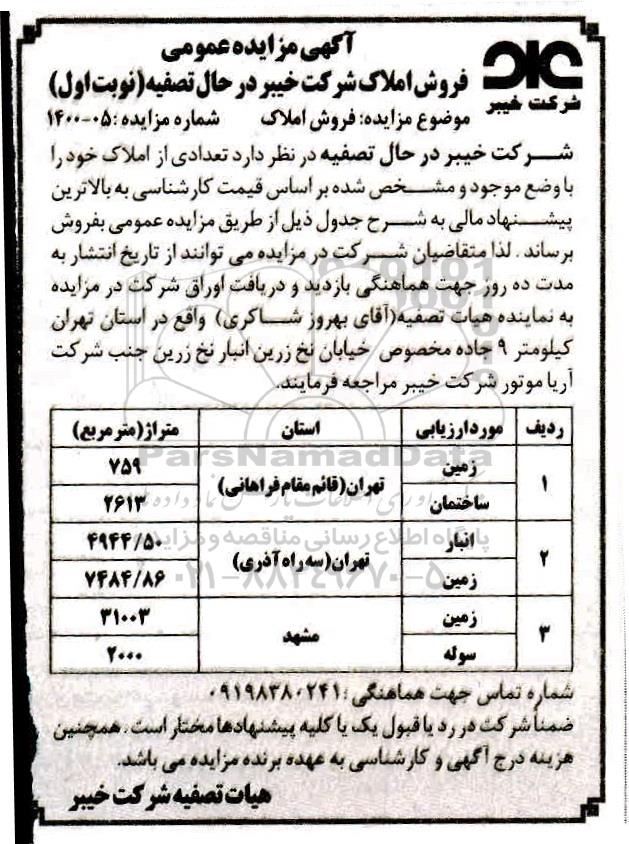 آگهی مزایده عمومی
فروش املاک شرکت خیبر در حال تصفیه (نوبت اول)
شرکت خیبر
موضوع مزایده: فروش املاک شماره مزایده: ۰۵-۱۴۰۰
شرکت خیبر در حال تصفیه در نظر دارد تعدادی از املاک خود را
با وضع موجود و مشخص شده بر اساس قیمت کارشناسی به بالاترین
پیشنهاد مالی به شرح جدول ذیل از طریق مزایده عمومی بفروش
برساند. لذا متقاضیان شرکت در مزایده می توانند از تاریخ انتشار به
مدت ده روز جهت هماهنگی بازدید و دریافت اوراق شرکت در مزایده
به نماینده هیات تصفیه (آقای بهروز شاکری) واقع در استان تهران
کیلومتر ۹ جاده مخصوص خیابان نخ زرین انبار نخ زرین جنب شرکت
آریا موتور شرکت خیبر مراجعه فرمایند.
ردیف مورد ارزیابی استان متراژ (متر مربع)
۱ زمین تهران (قائم مقام فراهانی) ۷۵۹
ساختمان ۲۶۱۳
۲ انبار تهران (سه راه آذری) ۴۹۴۴/۵۰
زمین ۷۴۸۴/۸۶
۳ زمین مشهد ۳۱۰۰۳
سوله ۲۰۰۰
شماره تماس جهت هماهنگی: ۰۹۱۹۸۳۸۰۲۴۱
ضمناً شرکت در رد یا قبول یک یا کلیه پیشنهادها مختار است. همچنین
هزینه درج آگهی و کارشناسی به عهده برنده مزایده می باشد.
هیات تصفیه شرکت خیبر
ParsNamadData
پایگاه اطلاع رسانی مناقصه و مزایده
۰۲۱-۸۸۳۴۹۶۷۰-۵